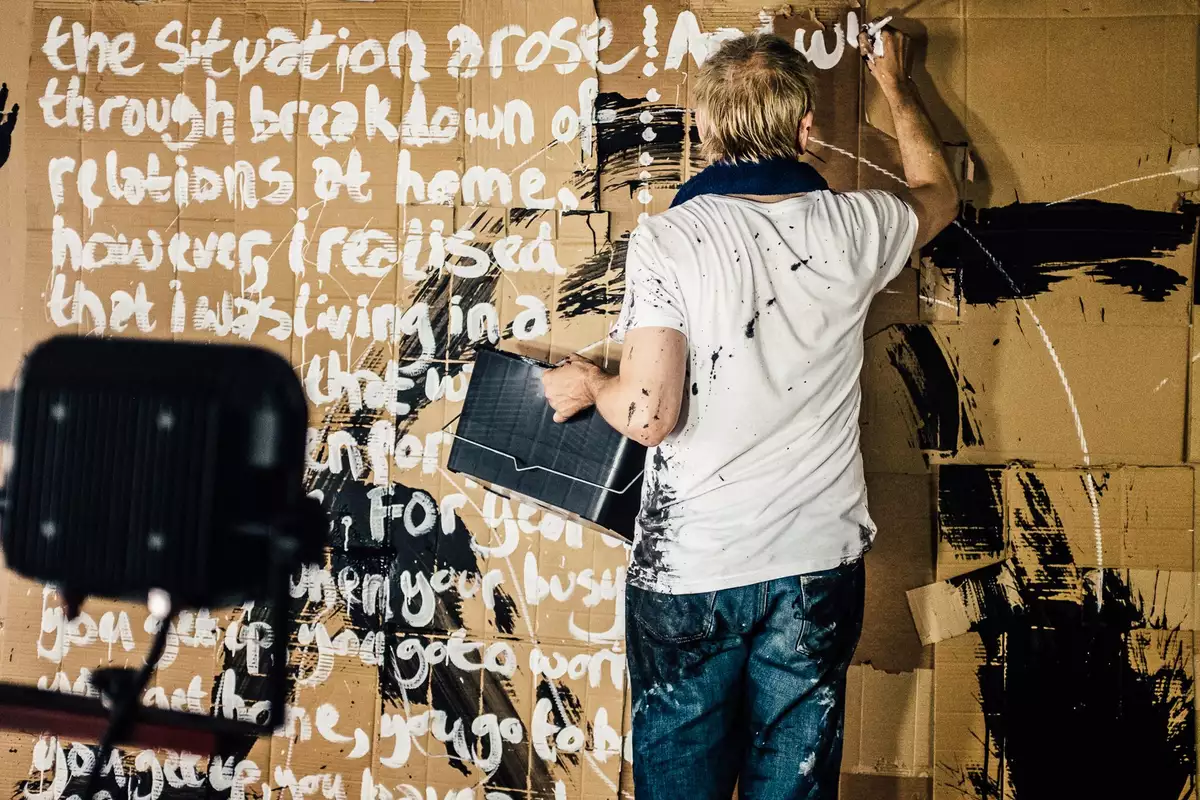 the Situation arose! And
through breakdown of
relations at home,
however, i realised
that i was living in a
that
for
For
when your busy
you get up you go to work
get home, you go to
you get up, you